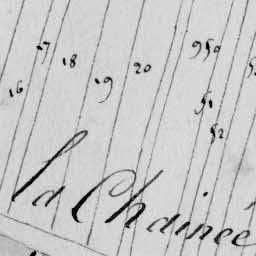 16
17
18
19
20
950
51
52
la Chainée